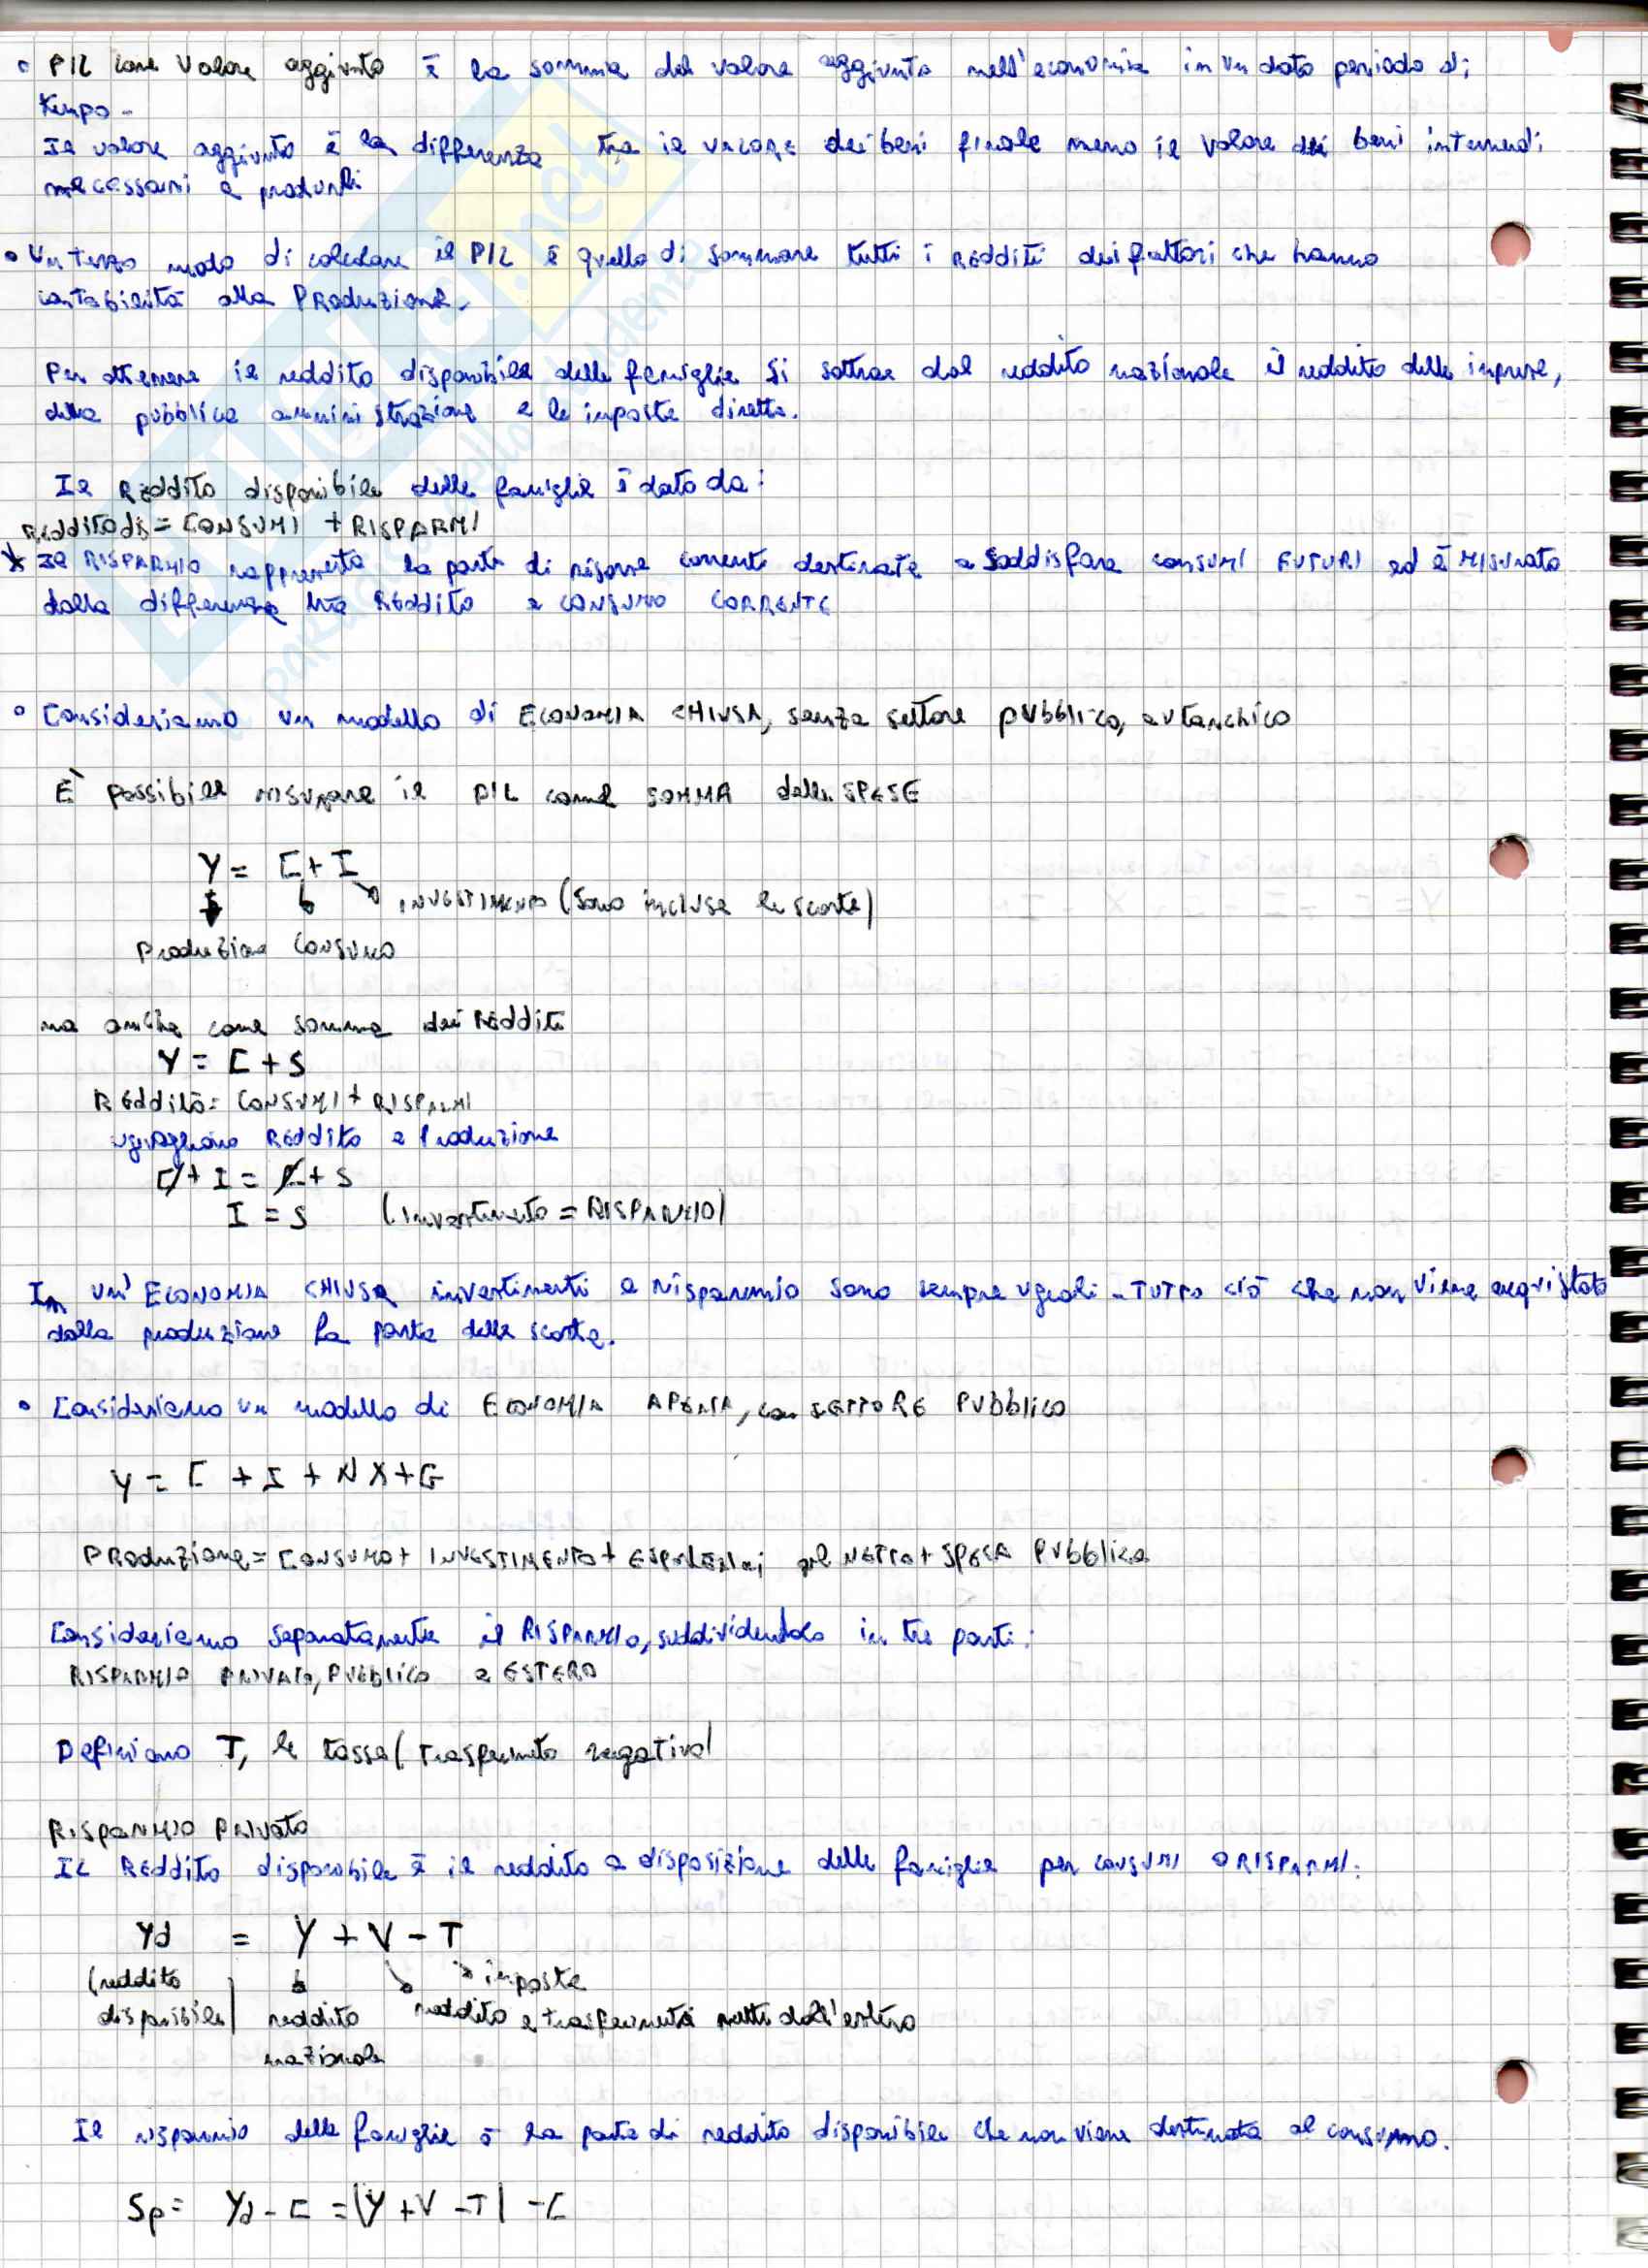 • PIL come Valore aggiunto è la somma del valore aggiunto nell'economia in un dato periodo di
tempo -
Il valore aggiunto è la differenza tra il valore dei beni finale meno il valore dei beni intermedi
necessari a produrli
• Un terzo modo di calcolare il PIL è quello di sommare tutti i redditi dei fattori che hanno
contabilità alla Produzione.
Per ottenere il reddito disponibile delle famiglie si sottrae dal reddito nazionale il reddito delle imprese,
della pubblica amministrazione e le imposte dirette.
Il Reddito disponibile delle famiglie è dato da:
Reddito dis = CONSUMI + RISPARMI
* Il RISPARMIO rappresenta la parte di risorse correnti destinate a soddisfare consumi FUTURI ed è misurato
dalla differenza tra Reddito e CONSUMO CORRENTE
• Consideriamo un modello di ECONOMIA CHIUSA, senza settore pubblico, autarchico
È possibile misurare il PIL come SOMMA delle SPESE
Y = C + I
INVESTIMENTO (sono incluse le scorte)
Produzione CONSUMO
ma anche come somma dei Redditi
Y = C + S
Reddito = CONSUMI + RISPARMI
uguagliano Reddito e Produzione
C + I = C + S
I = S (Investimento = RISPARMIO)
In un' ECONOMIA CHIUSA investimenti e risparmio sono sempre uguali - TUTTO ciò che non viene acquistato
dalla produzione fa parte delle scorte.
• Consideriamo un modello di ECONOMIA APERTA, con SETTORE PUBBLICO
Y = C + I + NX + G
PRoduzione = CONSUMO + INVESTIMENTO + Esportazioni al NETTO + SPESA PUBBLICA
Consideriamo separatamente il RISPARMIO, suddividendolo in tre parti:
RISPARMIO PRIVATO, PUBBLICO e ESTERO
Definiamo T, le tasse (Trasferimento negativo)
RISPARMIO PRIVATO
Il Reddito disponibile è il reddito a disposizione delle famiglie per CONSUMI o RISPARMI:
Yd = Y + V - T
imposte
(reddito disponibile) reddito nazionale
reddito e trasferimenti netti dall'estero
Il risparmio delle famiglie è la parte di reddito disponibile che non viene destinata al consumo.
Sp = Yd - C = (Y + V - T) - C